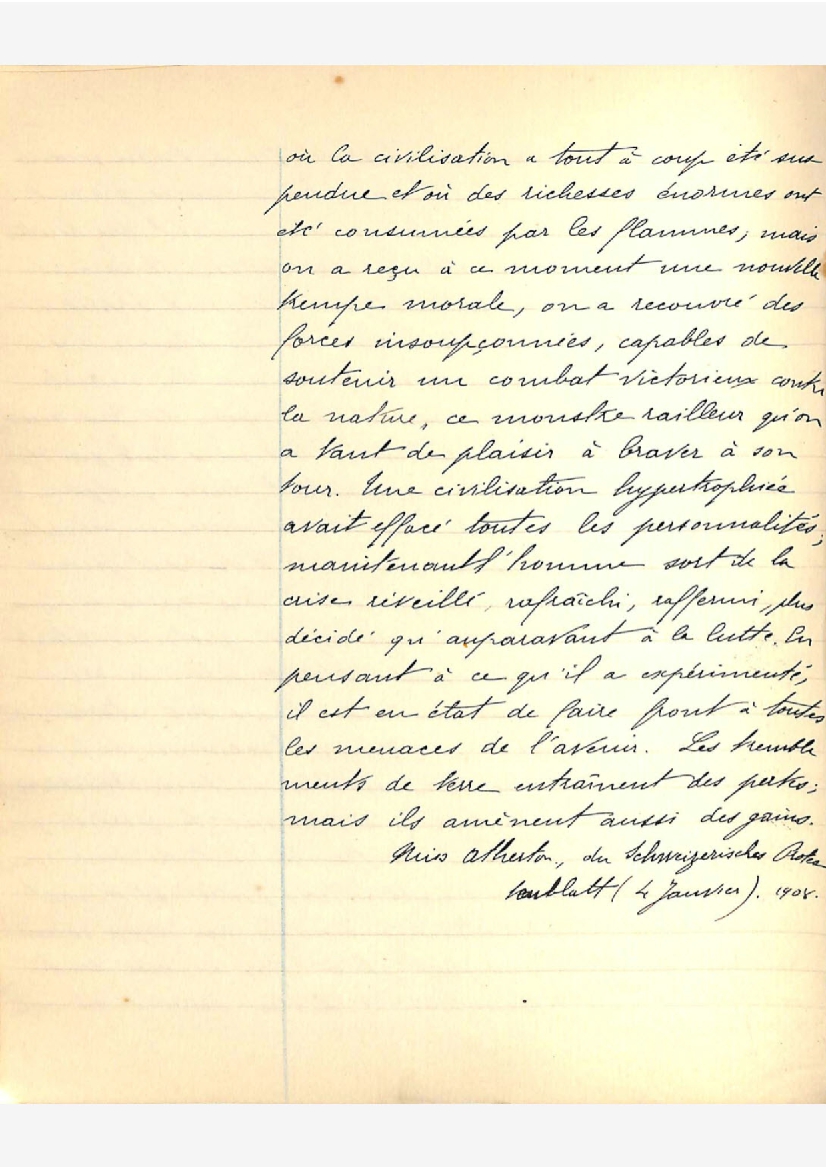 où la civilisation a tout à coup été sus
pendue et où des richesses énormes ont
été consumées par les flammes; mais
on a reçu à ce moment une nouvelle
trempe morale, on a recouvré des
forces insoupçonnées, capables de
soutenir un combat victorieux contre
la nature, ce monstre railleur qu'on
a tant de plaisir à braver à son
tour. Une civilisation hypertrophiée
avait effacé toutes les personnalités;
maintenant l'homme sort de la
crise réveillé, rafraîchi, raffermi, plus
décidé qu'auparavant à la lutte. En
pensant à ce qu'il a expérimenté,
il est en état de faire front à toutes
les menaces de l'avenir. Les tremble
ments de terre entraînent des pertes;
mais ils amènent aussi des gains.
Miss Atherton, du Schweizerisches Protes
tenblatt (4 Janvier). 1908.